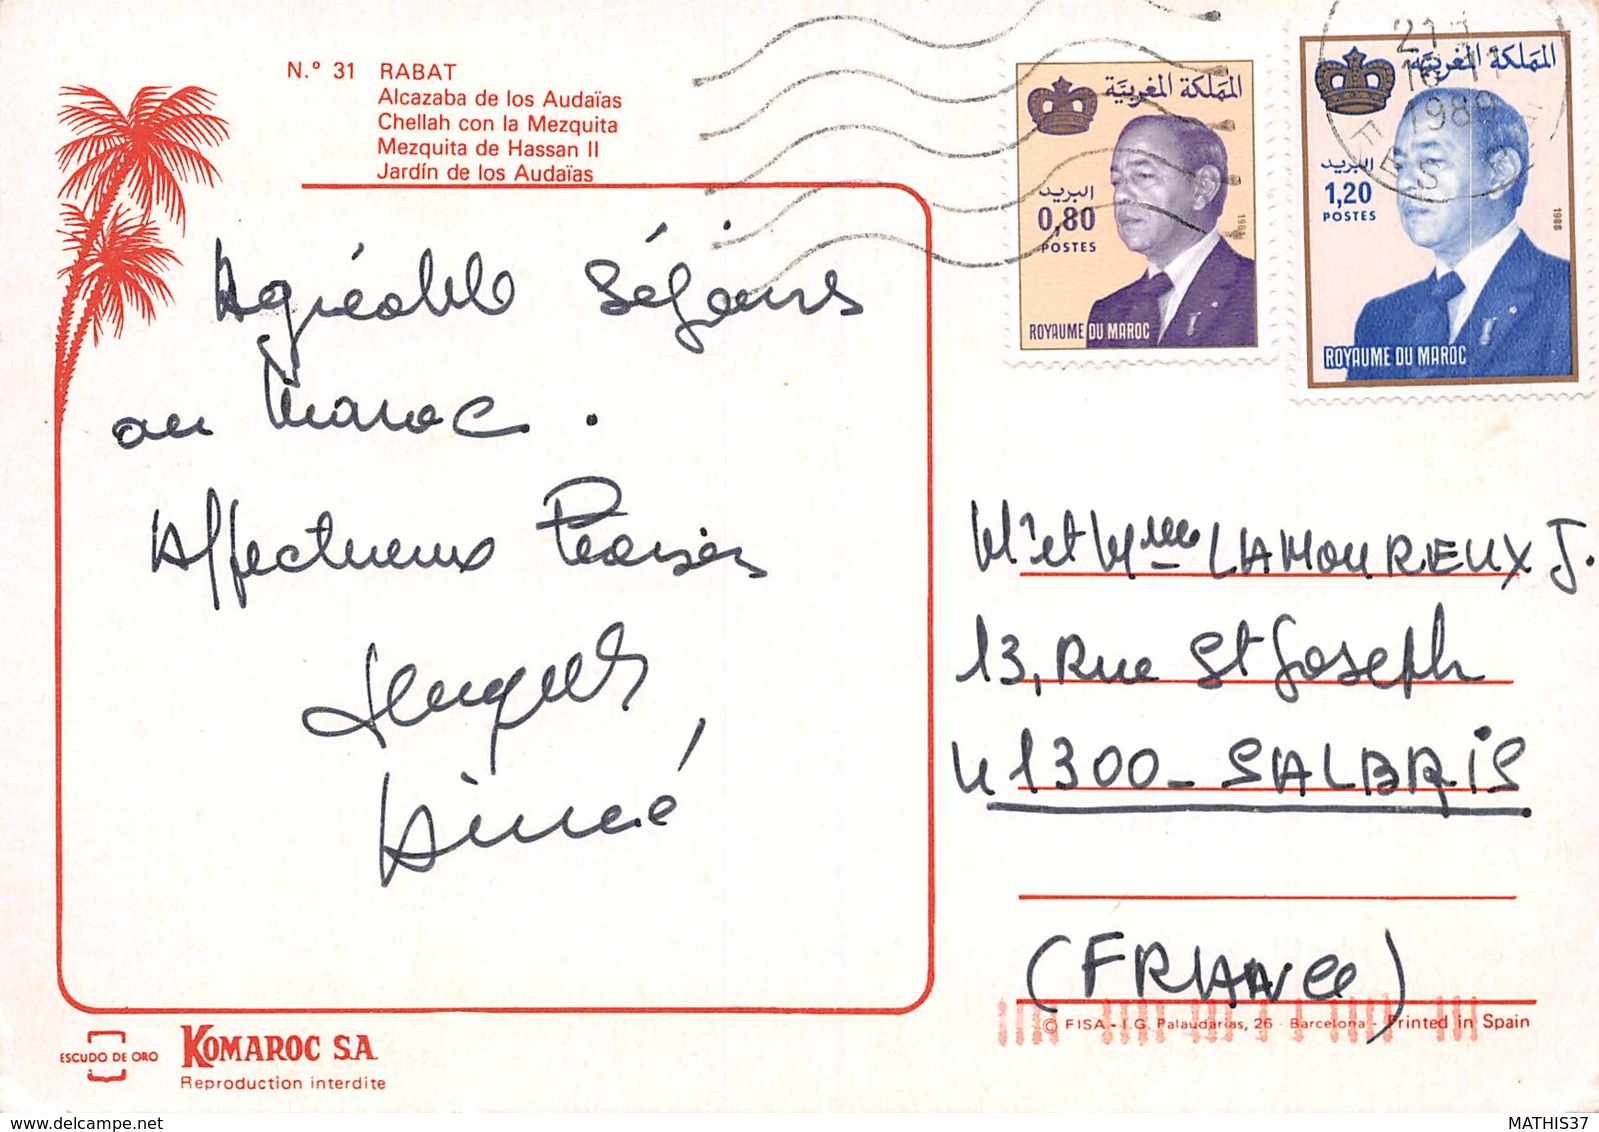 N.º 31 RABAT
Alcazaba de los Audaïas
Chellah con la Mezquita
Mezquita de Hassan II
Jardín de los Audaïas
المملكة المغربية
البريد
0,80
POSTES
1988
ROYAUME DU MAROC
المملكة المغربية
البريد
1,20
POSTES
1988
ROYAUME DU MAROC
1989
FES
Agréable Séjour
au Maroc.
Affectueux Baisers
Aimé
Mr et Mme LAMOUREUX J.
13, Rue St Joseph
41300 - SALBRIS
(FRANCE)
ESCUDO DE ORO
KOMAROC S.A.
Reproduction interdite
© FISA - I.G. Palaudarias, 26 - Barcelona - Printed in Spain
MATHIS37